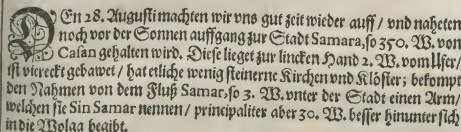 DEn 28. Augusti machten wir vns gut zeit wieder auff / vnd naheten
noch vor der Sonnen auffgang zur Stadt Samara, so 350. W. von
Casan gehalten wird. Diese lieget zur lincken Hand 2. W. vom Ufer /
ist viereckt gebawet / hat etliche wenig steinerne Kirchen vnd Klöster; bekompt
den Nahmen von dem Fluß Samar, so 3. W. vnter der Stadt einen Arm /
welchen sie Sin Samar nennen / principaliter aber 30. W. besser hinunter sich
in die Wolga begibt.